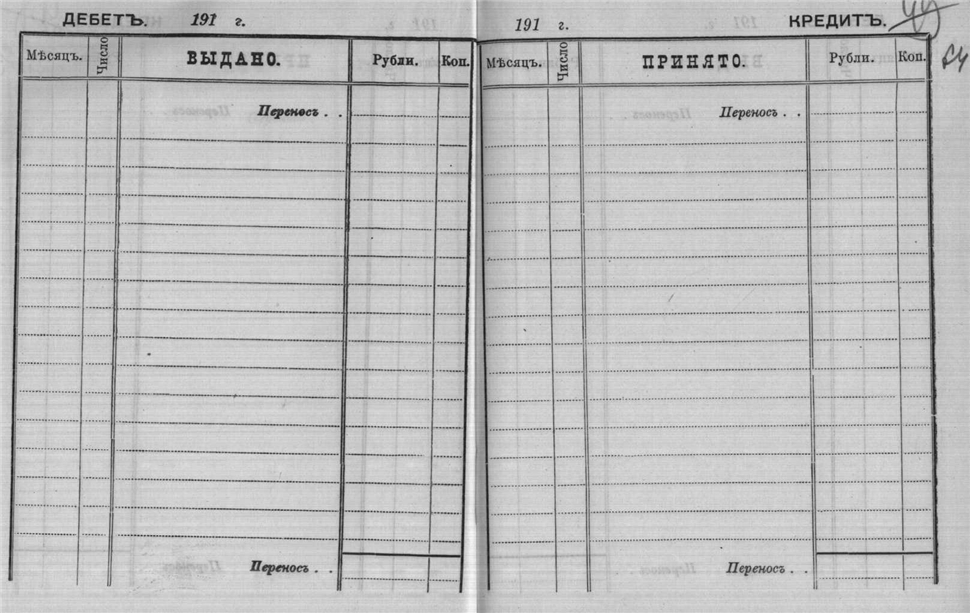 ДЕБЕТЪ. 191 г.
Мѣсяцъ. Число ВЫДАНО. Рубли. Коп.
Переносъ . .
Переносъ . .
191 г. КРЕДИТЪ.
Мѣсяцъ. Число ПРИНЯТО. Рубли. Коп.
Переносъ . .
Переносъ . .